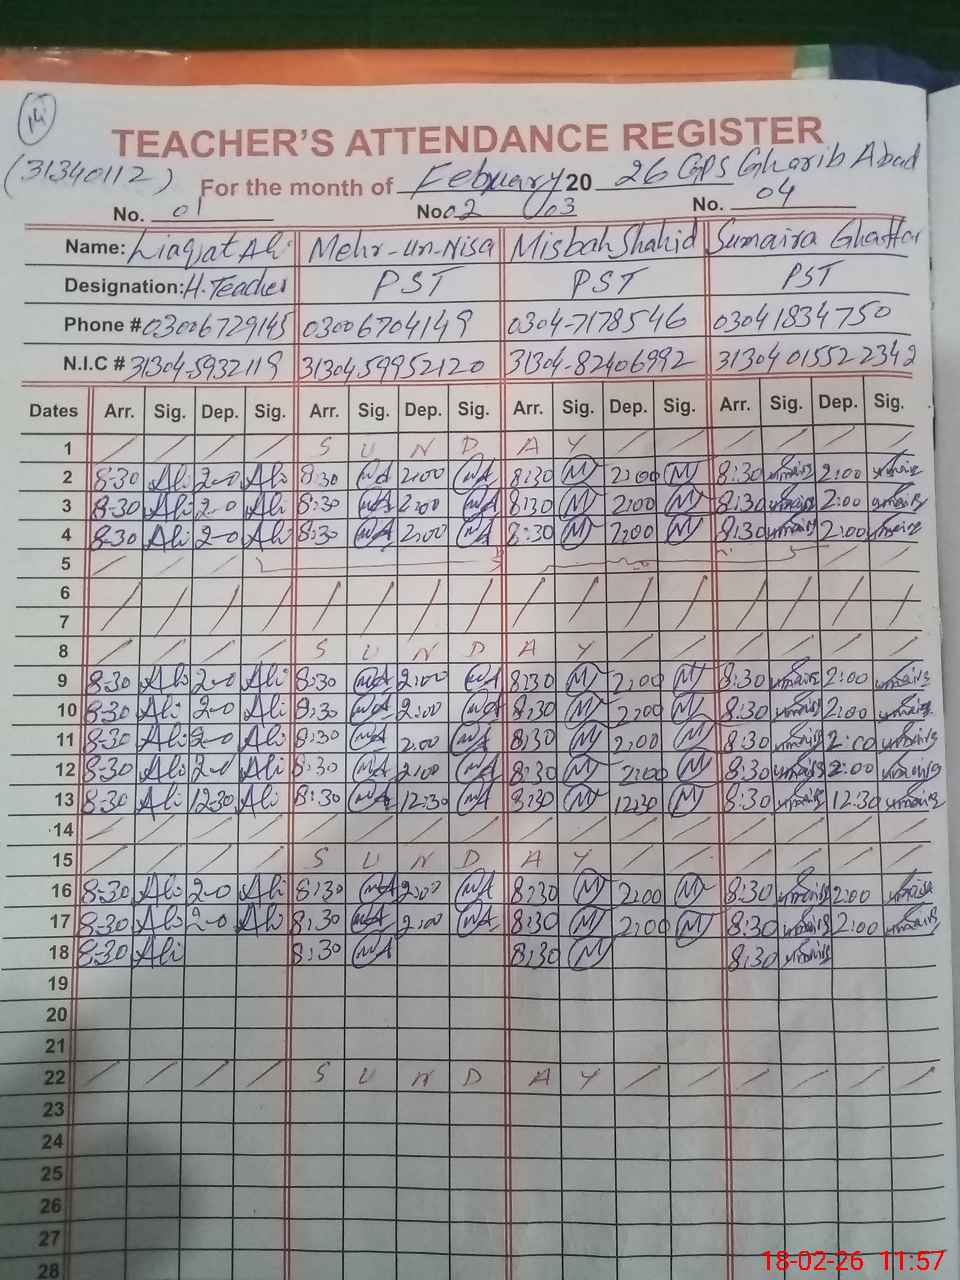 14
TEACHER'S ATTENDANCE REGISTER
(31340112) For the month of February 20 26 GPS Gharib Abad
No. 01 No. 02 03 No. 04
Name: Liaqat Ali Mehr-un-Nisa Misbah Shahid Sumaira Ghaffar
Designation: H.Teacher PST PST PST
Phone # 03006729145 03006704149 0304-7178546 03041834750
N.I.C # 31304-5932119 3130459952120 31304-82406992 3130401552234 2
Dates Arr. Sig. Dep. Sig. Arr. Sig. Dep. Sig. Arr. Sig. Dep. Sig. Arr. Sig. Dep. Sig.
1 S U N D A Y
2 8-30 Ali 2-0 Ali 8:30 2:00 8:30 M 2:00 M 8:30 umaira 2:00 umaira
3 8-30 Ali 2-0 Ali 8:30 2:00 8:30 M 2:00 M 8:30 umaira 2:00 umaira
4 8-30 Ali 2-0 Ali 8:30 2:00 8:30 M 2:00 M 8:30 umaira 2:00 umaira
5
6
7
8 S U N D A Y
9 8-30 Ali 2-0 Ali 8:30 2:00 8:30 M 2:00 M 8:30 umaira 2:00 umaira
10 8-30 Ali 2-0 Ali 8:30 2:00 8:30 M 2:00 M 8:30 umaira 2:00 umaira
11 8-30 Ali 2-0 Ali 8:30 2:00 8:30 M 2:00 M 8:30 umaira 2:00 umaira
12 8-30 Ali 2-0 Ali 8:30 2:00 8:30 M 2:00 M 8:30 umaira 2:00 umaira
13 8-30 Ali 12-30 Ali 8:30 12:30 8:30 M 12:30 M 8:30 umaira 12:30 umaira
14
15 S U N D A Y
16 8-30 Ali 2-0 Ali 8:30 2:00 8:30 M 2:00 M 8:30 umaira 2:00 umaira
17 8-30 Ali 2-0 Ali 8:30 2:00 8:30 M 2:00 M 8:30 umaira 2:00 umaira
18 8-30 Ali 8:30 8:30 M 8:30 umaira
19
20
21
22 S U N D A Y
23
24
25
26
27
28
18-02-26 11:57